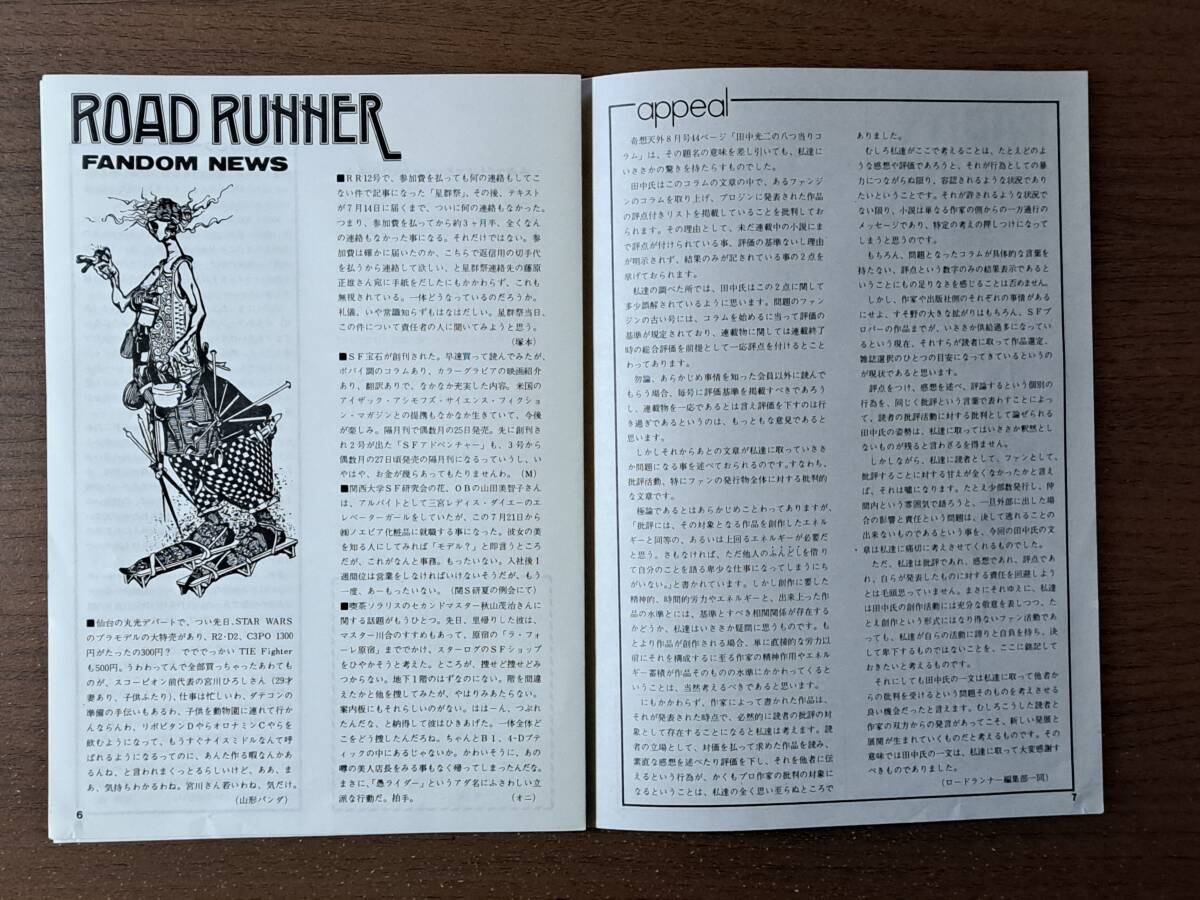 ROAD RUNNER
FANDOM NEWS
■仙台の丸光デパートで、つい先日、STAR WARS
のプラモデルの大特売があり、R2・D2、C3PO 1300
円がたったの300円？　でででっかい TIE Fighter
も500円。うわわってんで全部買っちゃったあわても
のが、スコーピオン前代表の宮川ひろしさん（29才
妻あり、子供ふたり）、仕事は忙しいわ、ダテコンの
準備の手伝いもあるわ、子供を動物園に連れて行か
んならんわ、リポビタンDやらオロナミンCやらを
飲むようになって、もうすぐナイスミドルなんて呼
ばれるようになるってのに、あんた作る暇なんかあ
るんね、と言われまくっとるらしいけど、ああ、ま
あ、気持ちわかるわね。宮川さん若いわね、気だけ。
（山形パンダ）
6
■RR12号で、参加費を払っても何の連絡もしてこ
ない件で記事になった「星群祭」、その後、テキスト
が7月14日に届くまで、ついに何の連絡もなかった。
つまり、参加費を払ってから約3ヶ月半、全くなん
の連絡もなかった事になる。それだけではない。参
加費は確かに届いたのか、こちらで返信用の切手代
を払うから連絡して欲しい、と星群祭連絡先の藤原
正雄さん宛に手紙をだしたにもかかわらず、これも
無視されている。一体どうなっているのだろうか。
礼儀、いや常識知らずもはなはだしい。星群祭当日、
この件について責任者の人に聞いてみようと思う。
（塚本）
■SF宝石が創刊された。早速買って読んでみたが、
ポパイ調のコラムあり、カラーグラビアの映画紹介
あり、翻訳ありで、なかなか充実した内容。米国の
アイザック・アシモフズ・サイエンス・フィクショ
ン・マガジンとの提携もなかなか生きていて、今後
が楽しみ。隔月刊で偶数月の25日発売。先に創刊さ
れ2号が出た「SFアドベンチャー」も、3号から
偶数月の27日頃発売の隔月刊になるっていうし、い
やはや、お金が幾らあってもたりませんわ。（M）
■関西大学SF研究会の花、OBの山田美智子さん
は、アルバイトとして三宮レディス・ダイエーのエ
レベーターガールをしていたが、この7月21日から
㈱ノエビア化粧品に就職する事になった。彼女の美
を知る人にしてみれば「モデル？」と即言うところ
だが、これがなんと事務。もったいない。入社後1
週間位は営業をしなければいけないそうだが、もう
一度、あーもったいない。（関S研夏の例会にて）
■喫茶ソラリスのセカンドマスター秋山茂治さんに
関する話題がもうひとつ。先日、里帰りした彼は、
マスター川合のすすめもあって、原宿の「ラ・フォ
ーレ原宿」まででかけ、スターログのSFショップ
をひやかそうと考えた。ところが、捜せど捜せどみ
つからない。地下1階のはずなのにない。階を間違
えたかと他を捜してみたが、やはりみあたらない。
案内板にもそれらしいのがない。ははーん、つぶれ
たんだな、と納得して彼はひきあげた。一体全体ど
こをどう捜したんだろね。ちゃんとB1、4-Dブテ
ィックの中にあるじゃないか。かわいそうに、あの
噂の美人店長をみる事もなく帰ってしまったんだな。
まさに、「愚ライダー」というアダ名にふさわしい立
派な行動だ。拍手。（オニ）
appeal
奇想天外8月号44ページ「田中光二の八つ当りコ
ラム」は、その題名の意味を差し引いても、私達に
いささかの驚きを持たらすものでした。
田中氏はこのコラムの文章の中で、あるファンジ
ンのコラムを取り上げ、プロジンに発表された作品
の評点付きリストを掲載していることを批判してお
られます。その理由として、未だ連載中の小説にま
で点が付けられている事、評価の基準ないし理由
が明示されず、結果のみが記されている事の2点を
挙げておられます。
私達の調べた所では、田中氏はこの2点に関して
多少誤解されているように思います。問題のファン
ジンの古い号には、コラムを始めるに当って評価の
基準が規定されており、連載物に関しては連載終了
時の総合評価を前提として一応評点を付けるとこと
わってあります。
勿論、あらかじめ事情を知った会員以外に読んで
もらう場合、毎号に評価基準を掲載すべきであろう
し、連載物を一応であるとは言え評価を下すのは行
き過ぎであるというのは、もっともな意見であると
思います。
しかしそれからあとの文章が私達に取っていささ
か問題になる事を述べておられるのです。すなわち、
批評活動、特にファンの発行物全体に対する批判的
な文章です。
極論であるとはあらかじめことわってありますが、
「批評には、その対象となる作品を創作したエネル
ギーと同等の、あるいは上回るエネルギーが必要だ
と思う。さもなければ、ただ他人のふんどしを借り
て自分のことを語る卑少な仕事になってしまうにち
がいない。」と書かれています。しかし創作に要した
精神的、時間的労力やエネルギーと、出来上った作
品の水準とには、基準とすべき相関関係が存在する
かどうか、私達はいささか疑問に思うものです。も
とより作品が創作される場合、単に直接的な労力以
前にそれを構成するに至る作家の精神作用やエネル
ギー蓄積が作品そのものの水準にかかわってくると
いうことは、当然考えるべきであると思います。
にもかかわらず、作家によって書かれた作品は、
それが発表された時点で、必然的に読者の批評の対
象として存在することになると私達は考えます。読
者の立場として、対価を払って求めた作品を読み、
素直な感想を述べたり評価を下し、それを他者に伝
えるという行為が、かくもプロ作家の批判の対象に
なるということは、私達の全く思い至らぬところで
ありました。
むしろ私達がここで考えることは、たとえどのよ
うな感想や評価であろうと、それが行為としての暴
力につながらぬ限り、容認されるような状況であり
たいということです。それが許されるような状況で
ない限り、小説は単なる作家の側からの一方通行の
メッセージであり、特定の考えの押しつけになって
しまうと思うのです。
もちろん、問題となったコラムが具体的な言葉を
持たない、評点という数字のみの結果表示であると
いうことにもの足りなさを感じることは否めません。
しかし、作家や出版社側のそれぞれの事情がある
にせよ、すそ野の大きな拡がりはもちろん、SFプ
ロパーの作品までが、いささか供給過多になってい
るという現在、それすらが読者に取って作品選定、
雑誌選択のひとつの目安になってきているというの
が現状であると思います。
評点をつけ、感想を述べ、評論するという個別の
行為を、同じく批評という言葉で表わすことによっ
て、読者の批評活動に対する批判として論ぜられる
田中氏の姿勢は、私達に取ってはいささか釈然とし
ないものが残ると言わざるを得ません。
しかしながら、私達に読者として、ファンとして、
批評することに対する甘えが全くなかったかと言え
ば、それは嘘になります。たとえ少部数発行し、仲
間内という雰囲気で語ろうと、一旦外部に出した場
合の影響と責任という問題は、決して逃れることの
出来ないものであるという事を、今回の田中氏の文
章は私達に痛切に考えさせてくれるものでした。
ただ、私達は批評であれ、感想であれ、評点であ
れ、自らが発表したものに対する責任を回避しよう
とは毛頭思っていません。まさにそれゆえに、私達
は田中氏の創作活動には充分な敬意を表しつつ、た
とえ創作という形式にはなり得ないファン活動であ
っても、私達が自らの活動に誇りと自負を持ち、決
して卑下するものではないことを、ここに銘記して
おきたいと考えるものです。
それにしても田中氏の一文は私達に取って他者か
らの批判を受けるという問題そのものを考えさせる
良い機会だったと言えます。むしろこうした読者と
作家の双方からの発言があってこそ、新しい発展と
展開が生まれていくものだと考えるものです。その
意味では田中氏の一文は、私達に取って大変感謝す
べきものでありました。
（ロードランナー編集部一同）
7